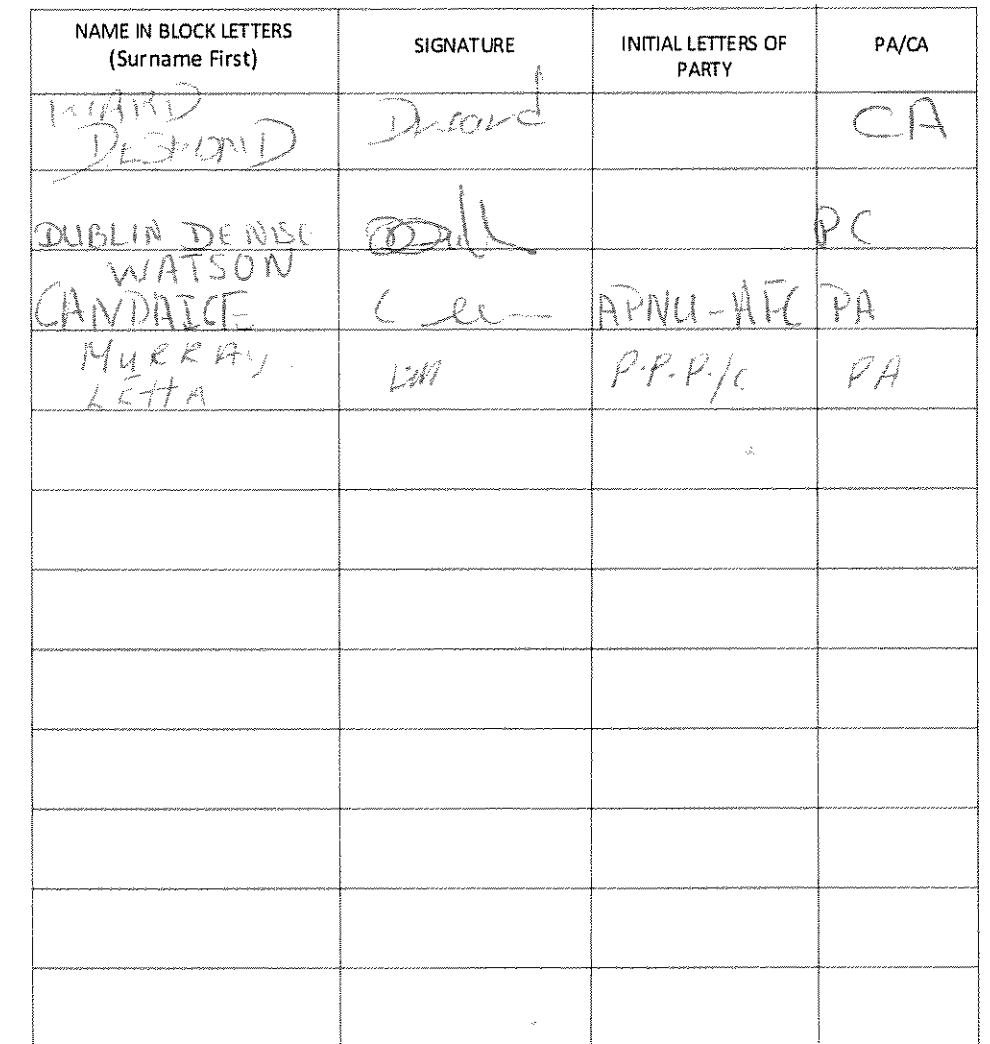 NAME IN BLOCK LETTERS
(Surname First)
SIGNATURE
INITIAL LETTERS OF
PARTY
PA/CA
WARD
DESMOND
DWard
CA
DUBLIN DENISE
PC
WATSON
CANDAICE
APNU-AFC PA
MURRAY,
LETTA
LM
P.P.P./C
PA